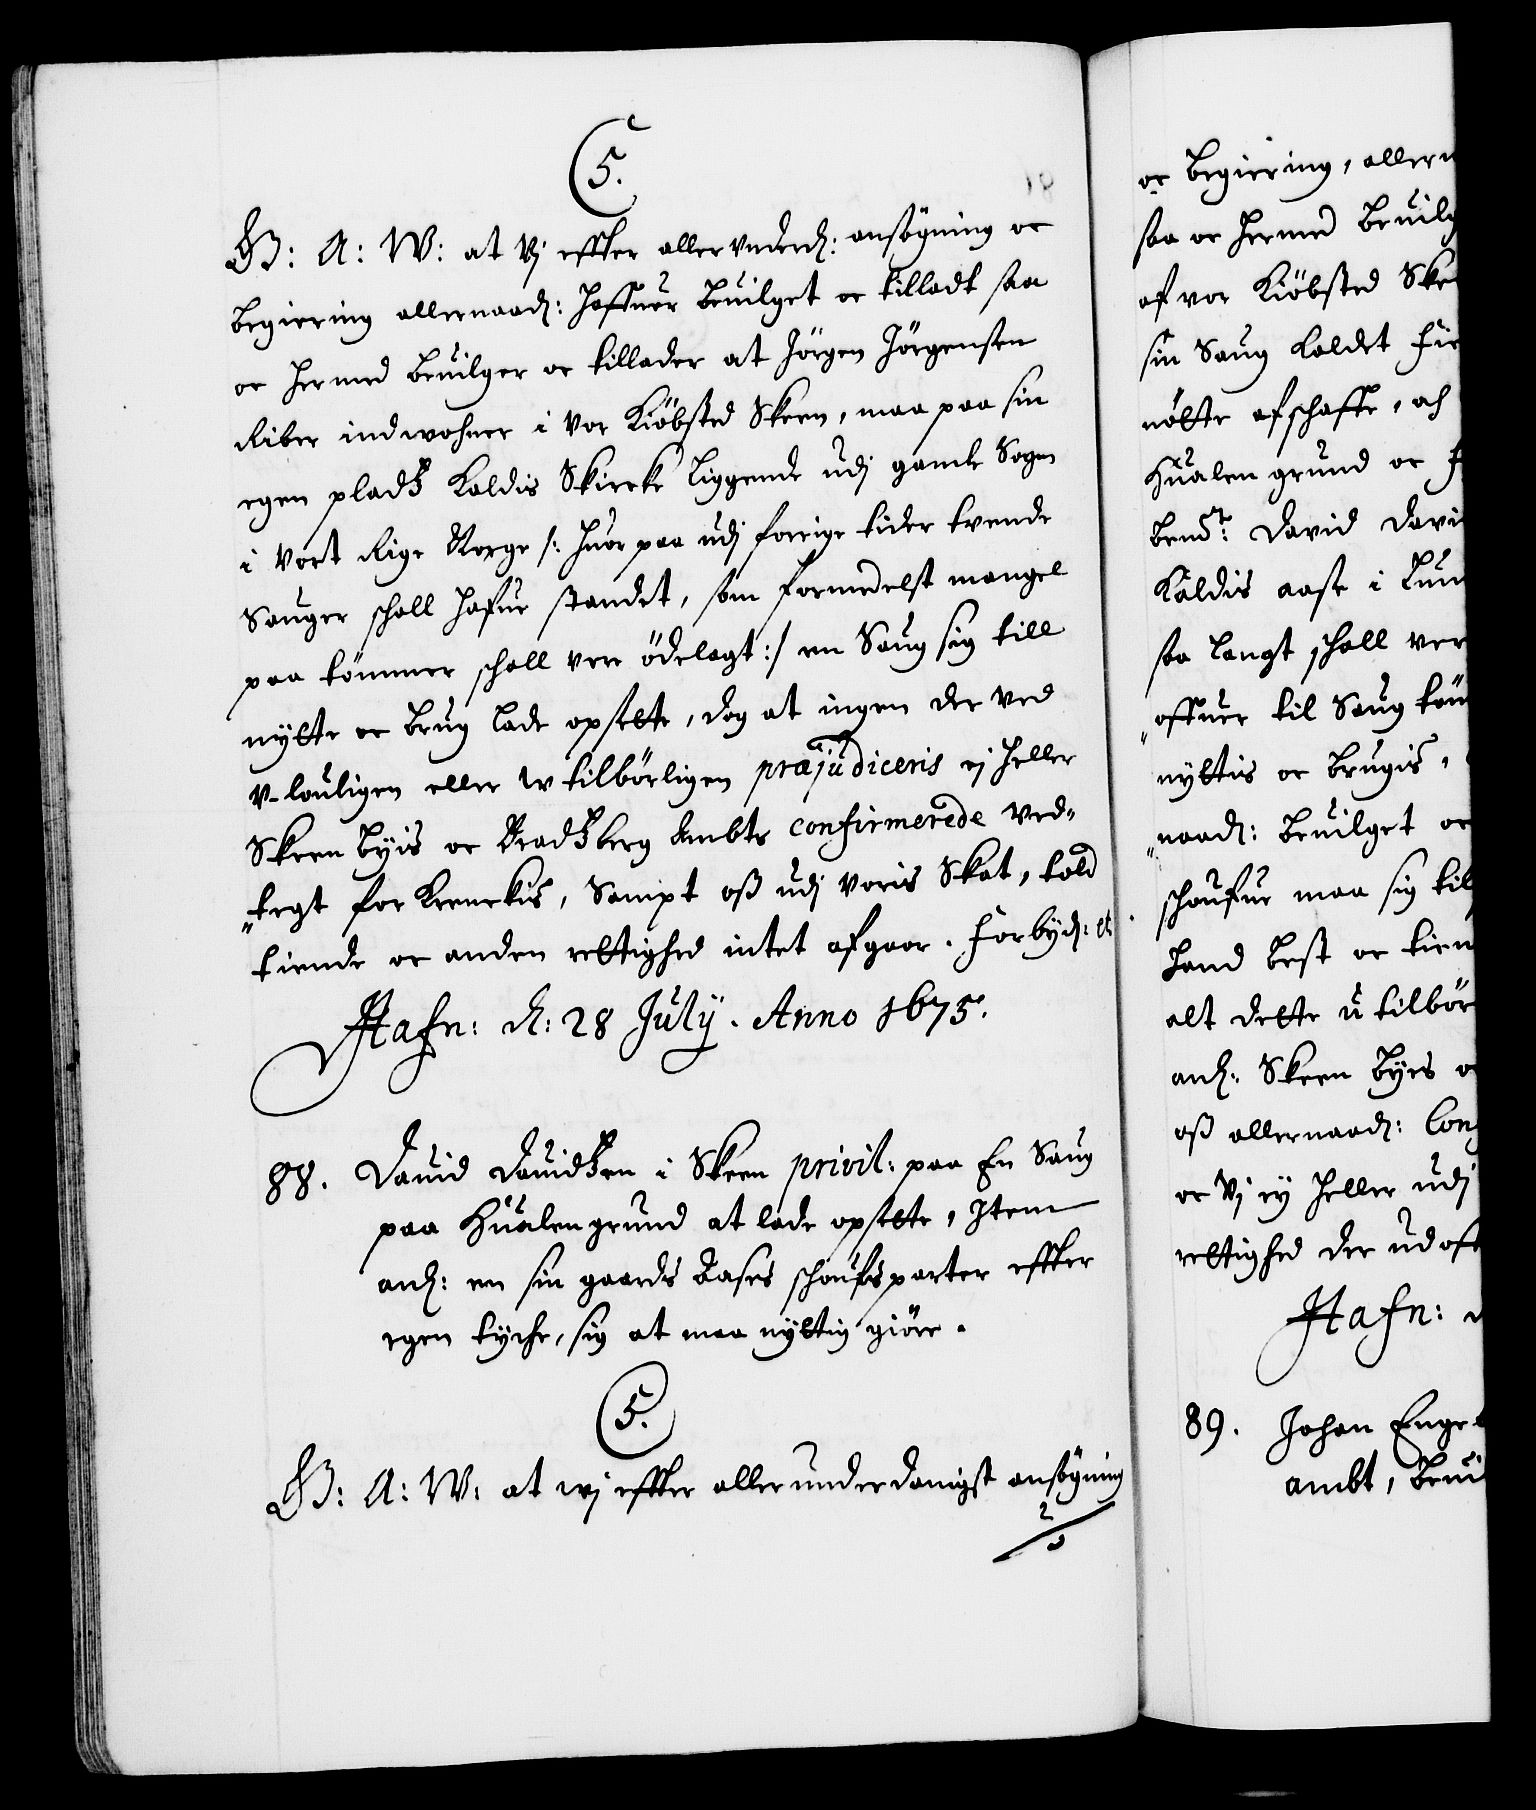 C
5.
G: A: W: at Vj effter allervnderd: ansøgning oc
begiering allernaad: haffuer beuilget oc tilladt saa
oc hermed beuilger oc tillader at Jörgen Jörgensen
Riber indwohner i Vor Kiöbsted Skeen, maa paa sin
egen pladtz kaldis Skierke liggende udj gamle Sogen
i Vort Rige Norge /: huor paa udj forrige tider tvende
Sauger schall hafue standet, som formedelst mangel
paa tömmer schall vere ödelagt :/ en Saug sig till
nytte oc brug lade opsette, dog at ingen der ved
V-louligen eller w tilbörligen præjudiceris ej heller
Skeen byis oc Bradtzberg Ambts confirmerede ved-
tegt for krenckis, Sampt oss udj Voris Skat, told
tiende oc anden rettighed intet afgaar. Forbyd: et
Hafn: d: 28 July. Anno 1675.
88. Dauid Dauidtzen i Skeen privil: paa En Saug
paa Hualen grund at lade opsette, Item
anl: en sin gaards Aases schoufs parter effter
egen tyche, sig at maa nyttig giöre.
C
5.
G: A: W: at wj effter allerunderdanigst ansögning
oc begiering, aller
saa oc hermed beuilg
af vor Kiöbsted Ske
sin Saug kaldet
afschaffe, och
Hualen grund oc
bemt: David Davi
Kaldis aase i
saa langt schall ver
offuer til Saug töm
nyttis oc brugis,
naad: beuilget oc
schoufue maa sig til
hand best oc tien
alt dette u tilbör
anl: Skeen byes o
oss allernaad: Con
oc Vj ey heller udj
rettighed der ud
Hafn: d
89. Johan Enge
ambt, beui